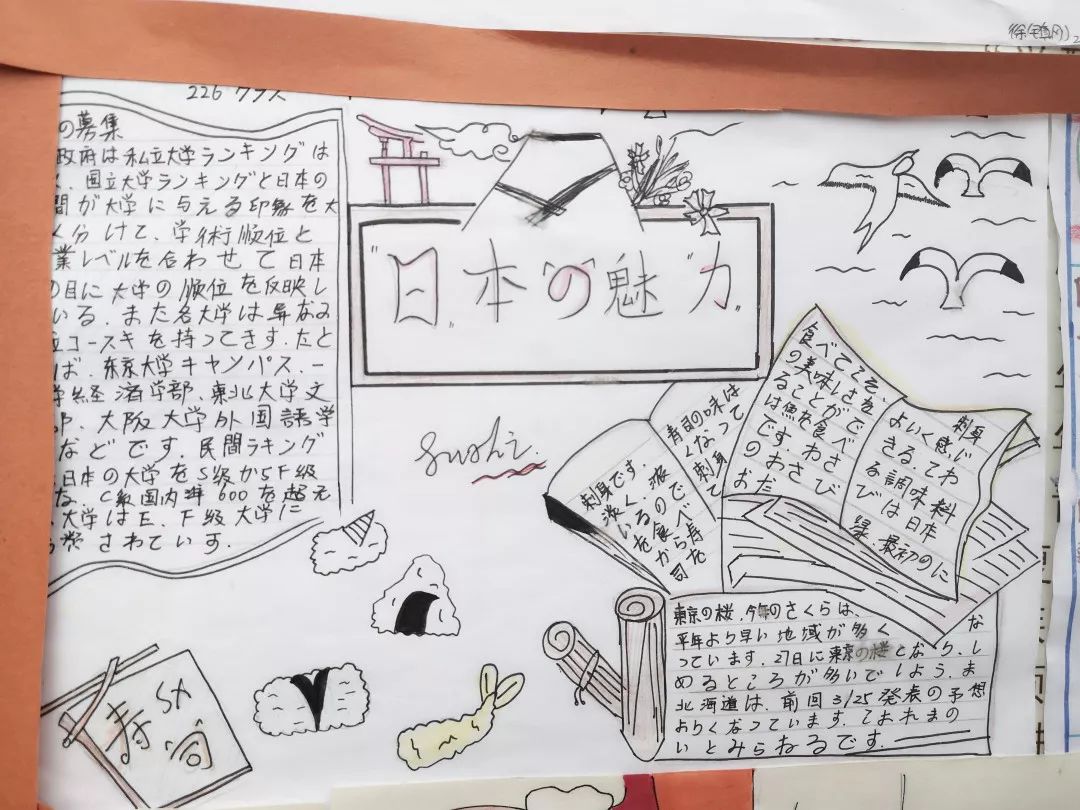 226 クラス
の募集
政府は私立大学ランキングは
国立大学ランキングと日本の
間が大学に与える印象を大
く分けて、学術順位と
業レベルを合わせて日本
の目に大学の順位を反映し
いる.また各大学は異なる
立コースキを持ってきす.たと
ば.东京大学キャンパス.一
学経済学部、東北大学文
部.大阪大学外国語学
などです.民間ラキング
日本の大学をS級からF級
な.C級国内準600を超え
大学はE、F級大学に
されています.
日本の魅力
sushi.
寿司
食べてこそ、
の美味しさを
ることがで
は魚を食べ
です.わさび
のおさ
おだ
刺身
よいく感じ
きる.てわ
る調味料
びは日本
緑.最初のに
寿司の味は
くなって
刺身
刺身です.
淡く、濃
いるので
を食べ
から寿
司を
東京の桜、今年のさくらは、
平年より早い地域が多く な
っています.27日に東京の桜となり、し
めるところが多いでしよう.ま
北海道は、前回3/25発表の予想
よりくなっています.これまの
いとみらねるです.